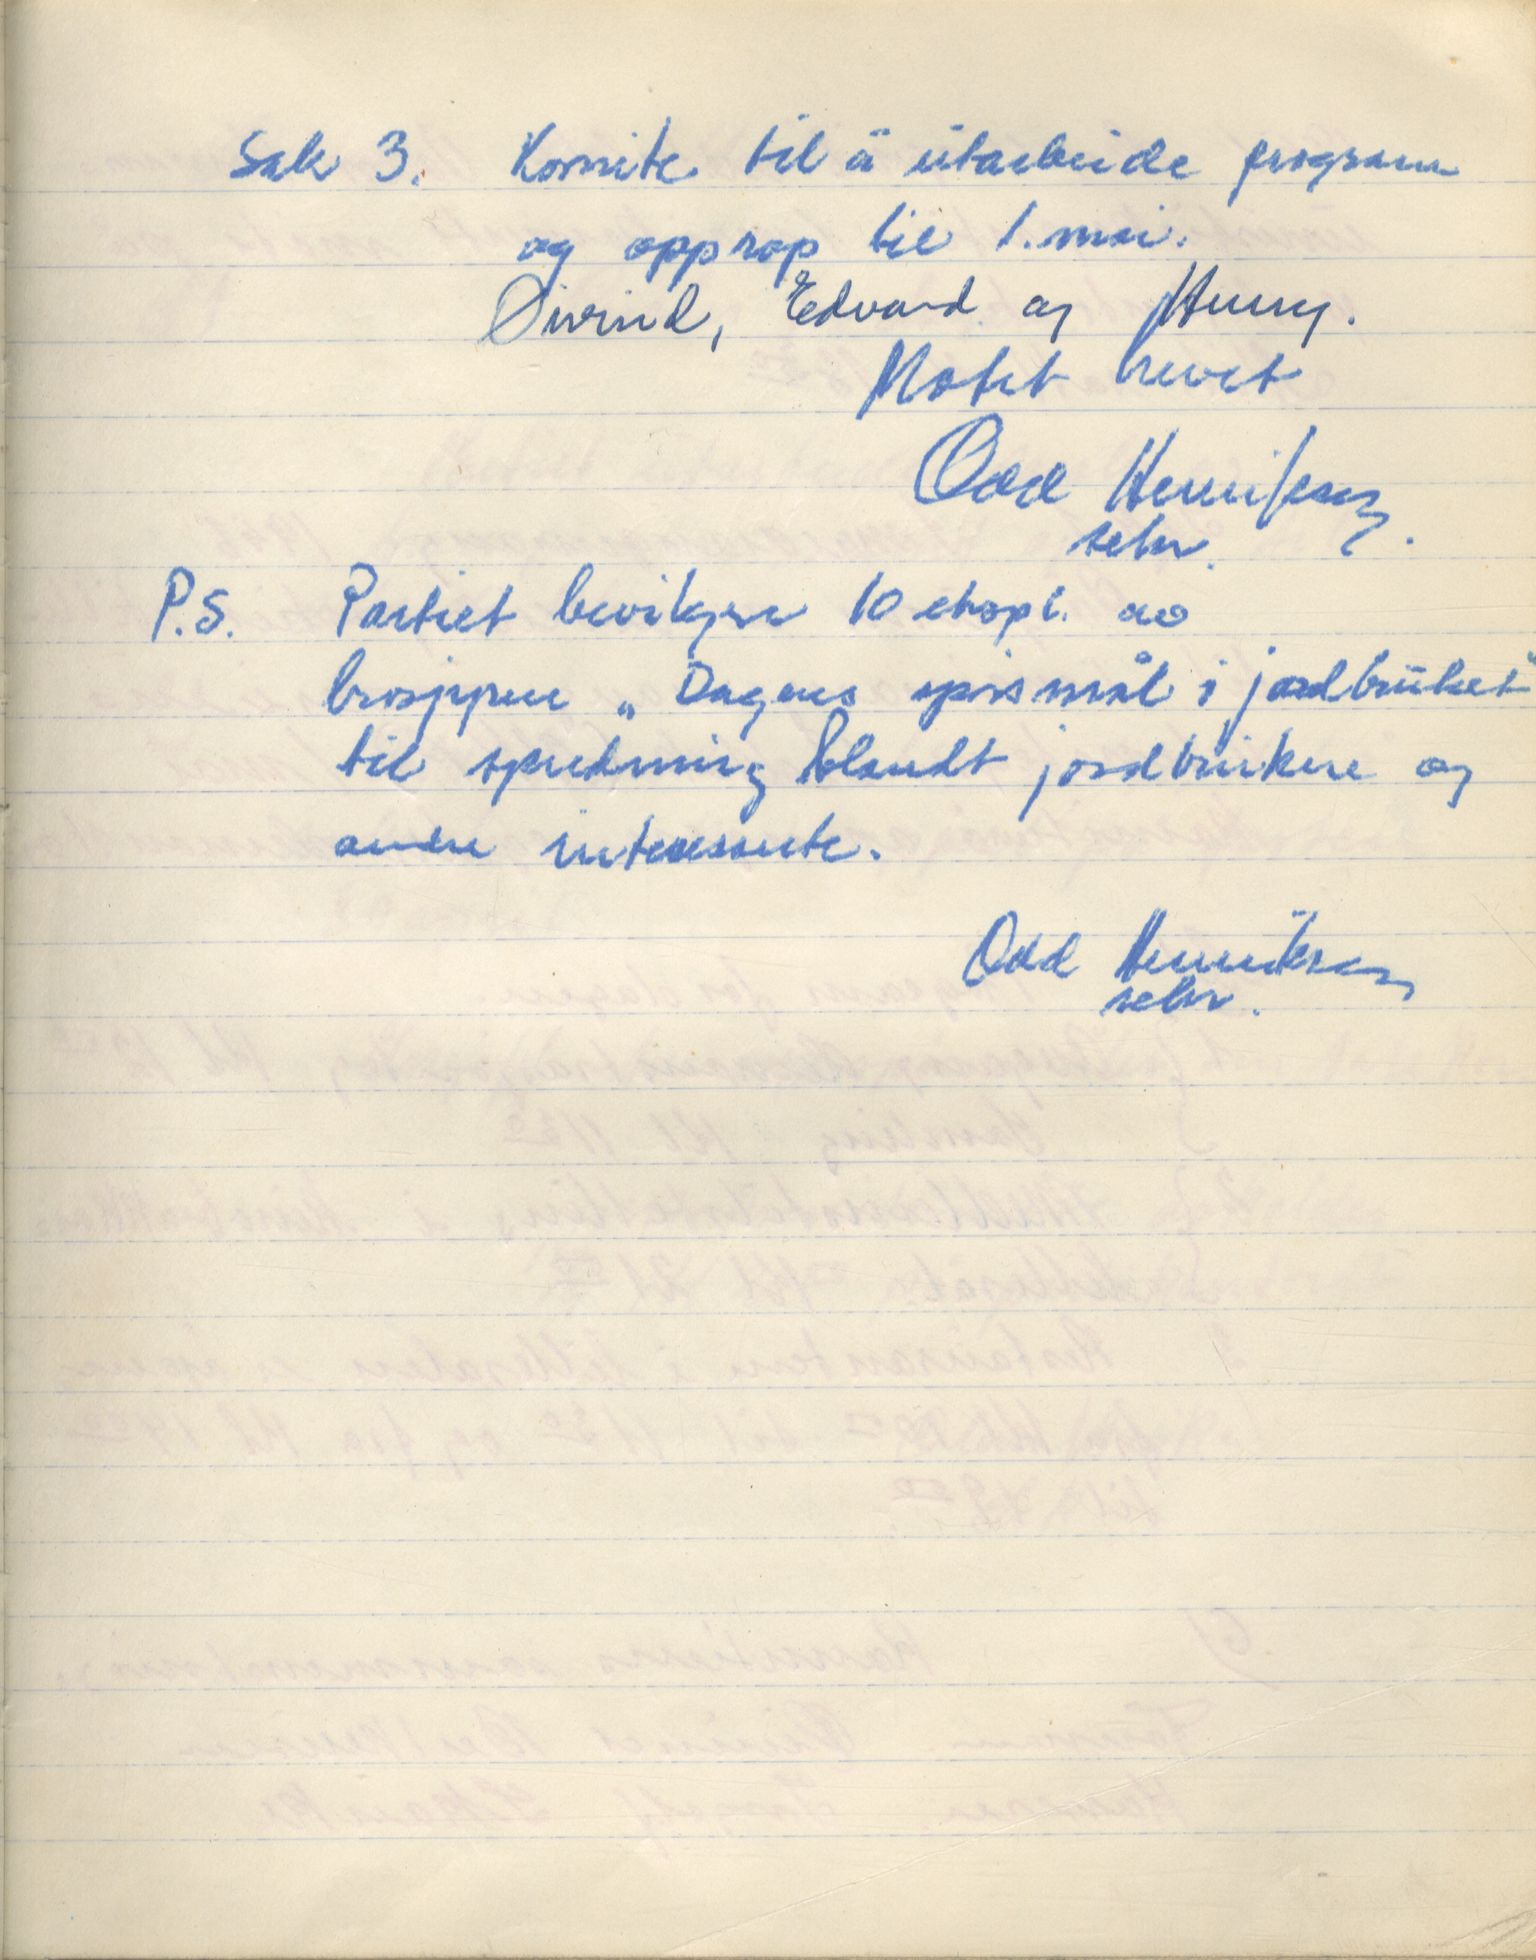 Sak 3. Komite til å utarbeide program
og opprop til 1. mai.
Øivind, Edvard og Henry.
Møtet hevet
Odd Henriksen
sekr.
P.S. Partiet bevilger 10 ekspl. av
brosjyren „Dagens spørsmål i jordbruket"
til spredning blandt jordbrukere og
andre interesserte.
Odd Henriksen
sekr.